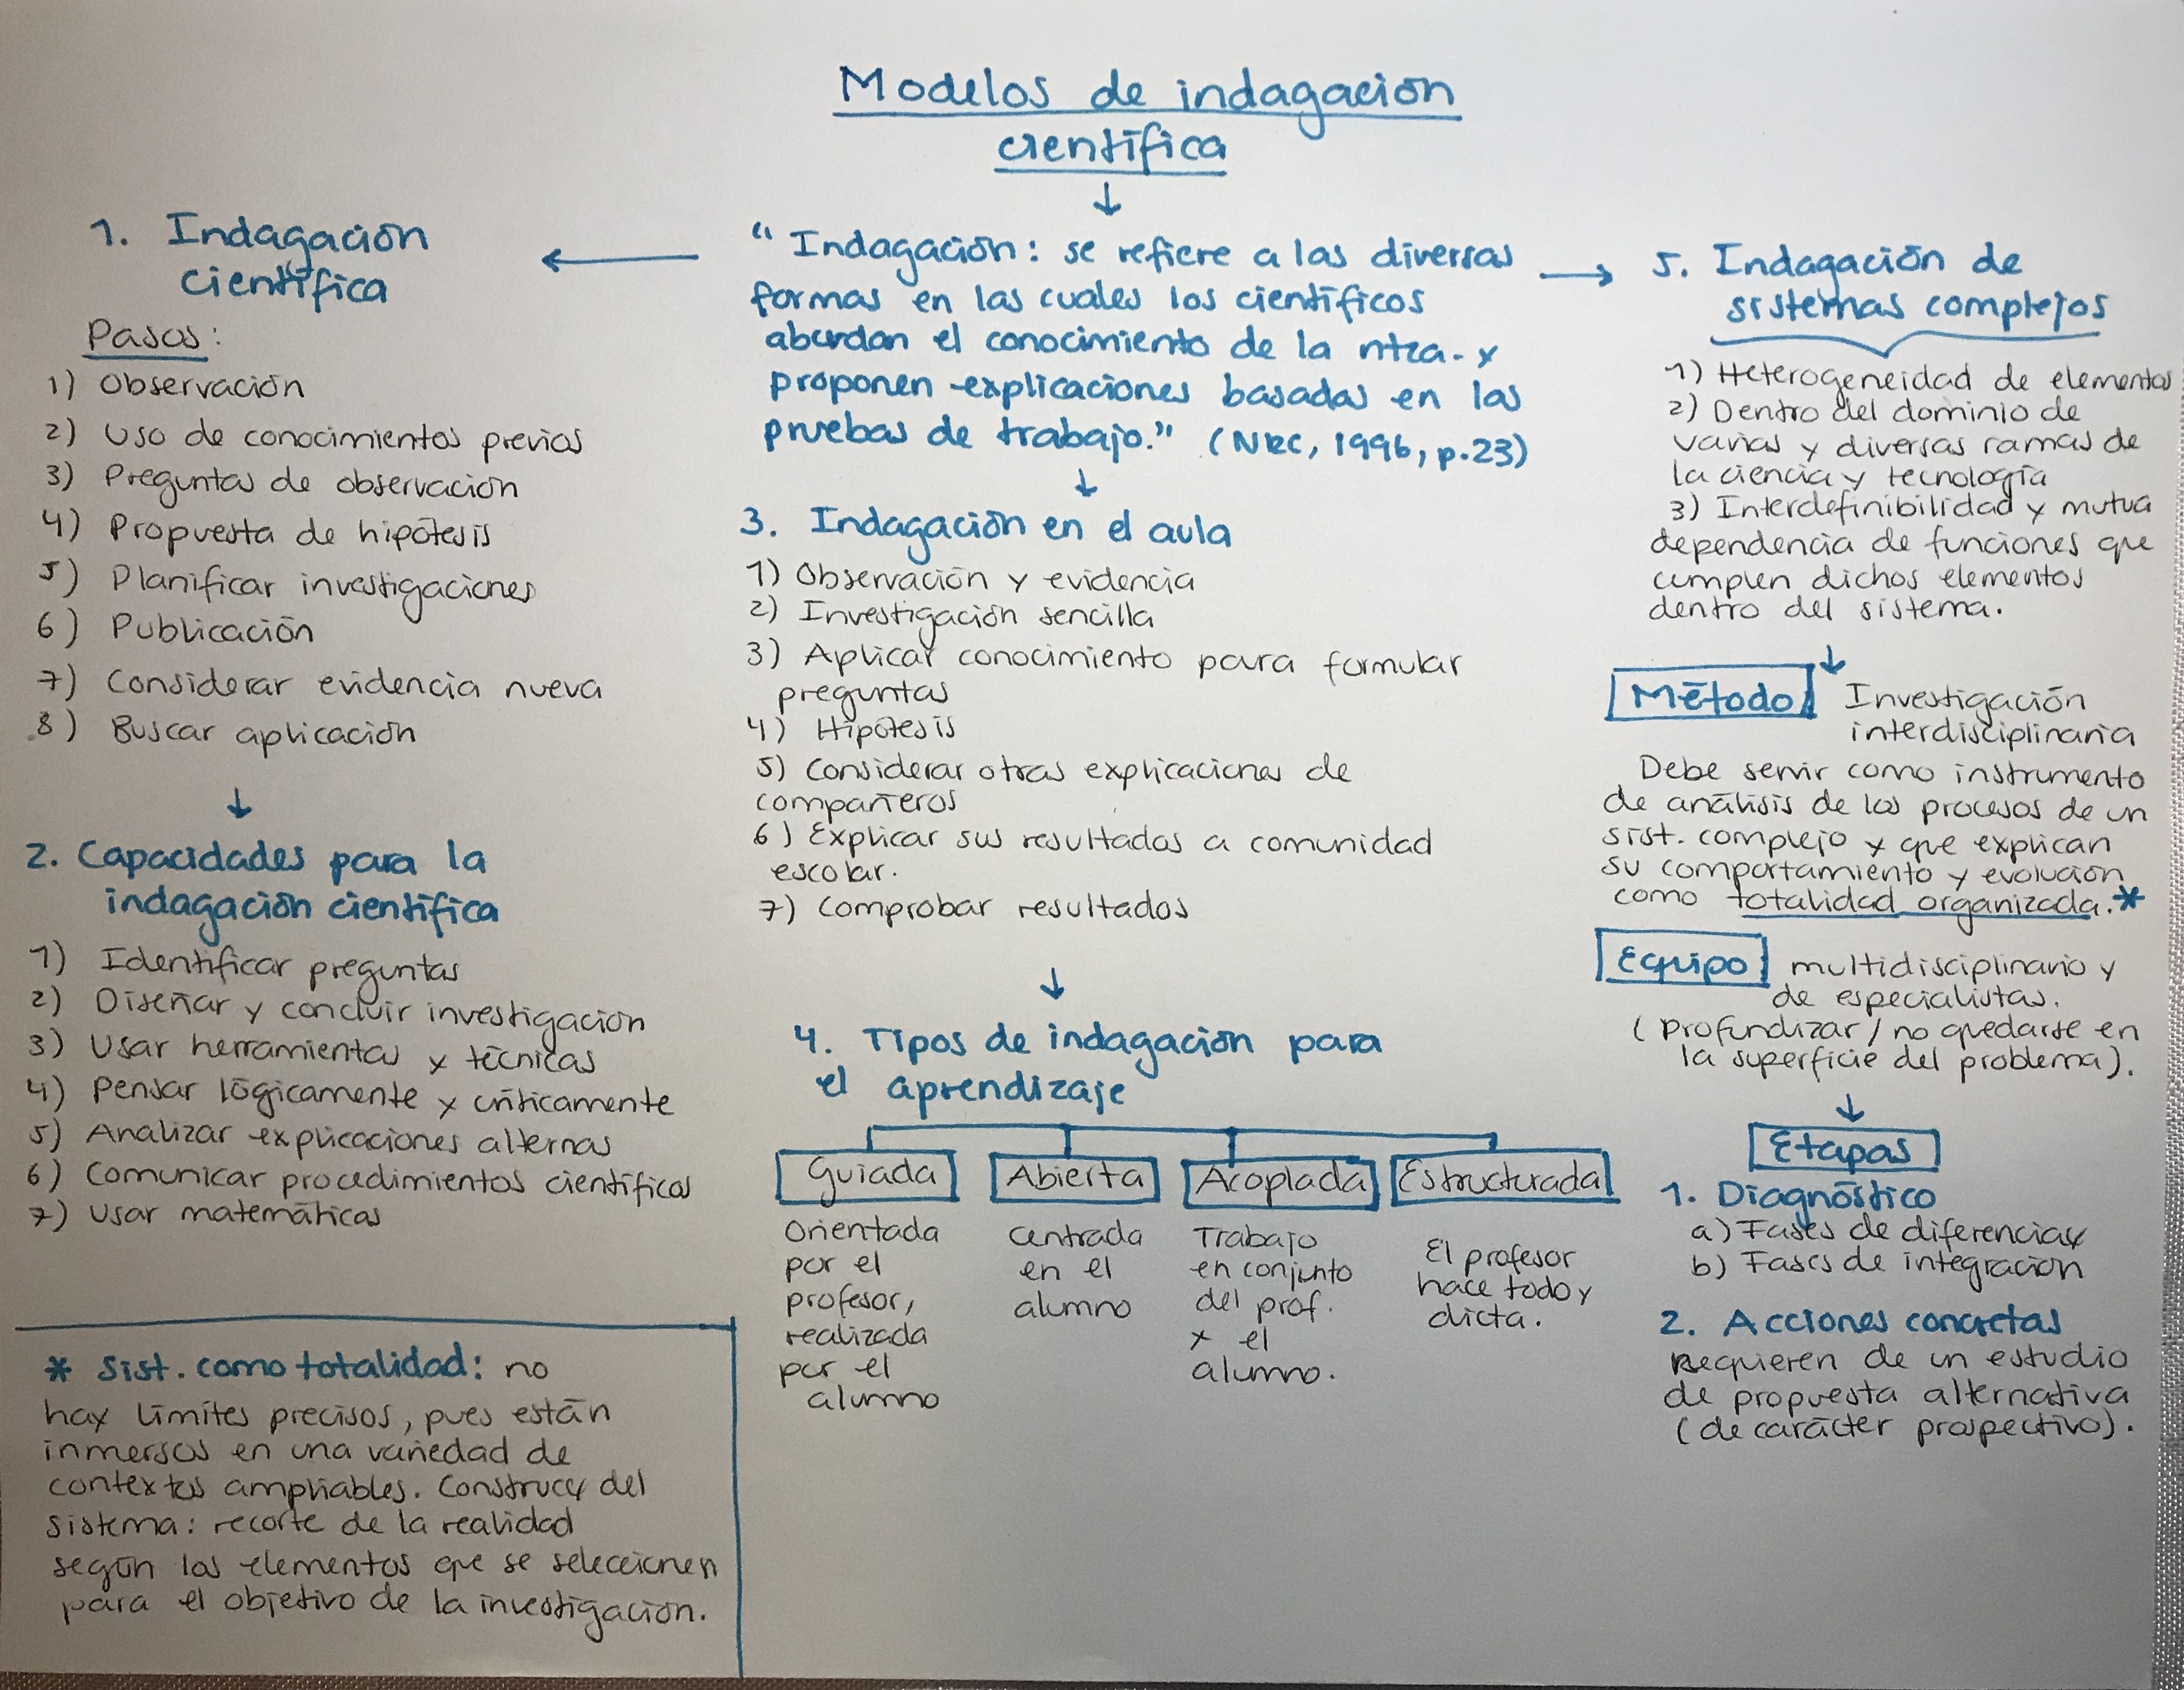 Modelos de indagación
científica
"Indagación: se refiere a las diversas
formas en las cuales los científicos
abordan el conocimiento de la ntza. y
proponen explicaciones basadas en las
pruebas de trabajo." (NRC, 1996, p.23)
1. Indagación
científica
Pasos:
1) Observación
2) Uso de conocimientos previos
3) Preguntas de observación
4) Propuesta de hipótesis
5) Planificar investigaciones
6) Publicación
7) Considerar evidencia nueva
8) Buscar aplicación
2. Capacidades para la
indagación científica
1) Identificar preguntas
2) Diseñar y concluir investigación
3) Usar herramientas y técnicas
4) Pensar lógicamente y críticamente
5) Analizar explicaciones alternas
6) Comunicar procedimientos científicos
7) Usar matemáticas
* Sist. como totalidad: no
hay límites precisos, pues están
inmersos en una variedad de
contextos ampliables. Construcc del
sistema: recorte de la realidad
según los elementos que se seleccionen
para el objetivo de la investigación.
3. Indagación en el aula
1) Observación y evidencia
2) Investigación sencilla
3) Aplicar conocimiento para formular
preguntas
4) Hipótesis
5) Considerar otras explicaciones de
compañeros
6) Explicar sus resultados a comunidad
escolar.
7) Comprobar resultados
4. Tipos de indagación para
el aprendizaje
Guiada
Orientada
por el
profesor,
realizada
por el
alumno
Abierta
Centrada
en el
alumno
Acoplada
Trabajo
en conjunto
del prof.
y el
alumno.
Estructurada
El profesor
hace todo y
dicta.
5. Indagación de
sistemas complejos
1) Heterogeneidad de elementos
2) Dentro del dominio de
varias y diversas ramas de
la ciencia y tecnología
3) Interdefinibilidad y mutua
dependencia de funciones que
cumplen dichos elementos
dentro del sistema.
Método Investigación
interdisciplinaria
Debe servir como instrumento
de análisis de los procesos de un
sist. complejo y que explican
su comportamiento y evolución
como totalidad organizada.*
Equipo multidisciplinario y
de especialistas.
(Profundizar / no quedarse en
la superficie del problema).
Etapas
1. Diagnóstico
a) Fases de
b) Fases de integración
2. Acciones concretas
Requieren de un estudio
de propuesta alternativa
(de carácter prospectivo).